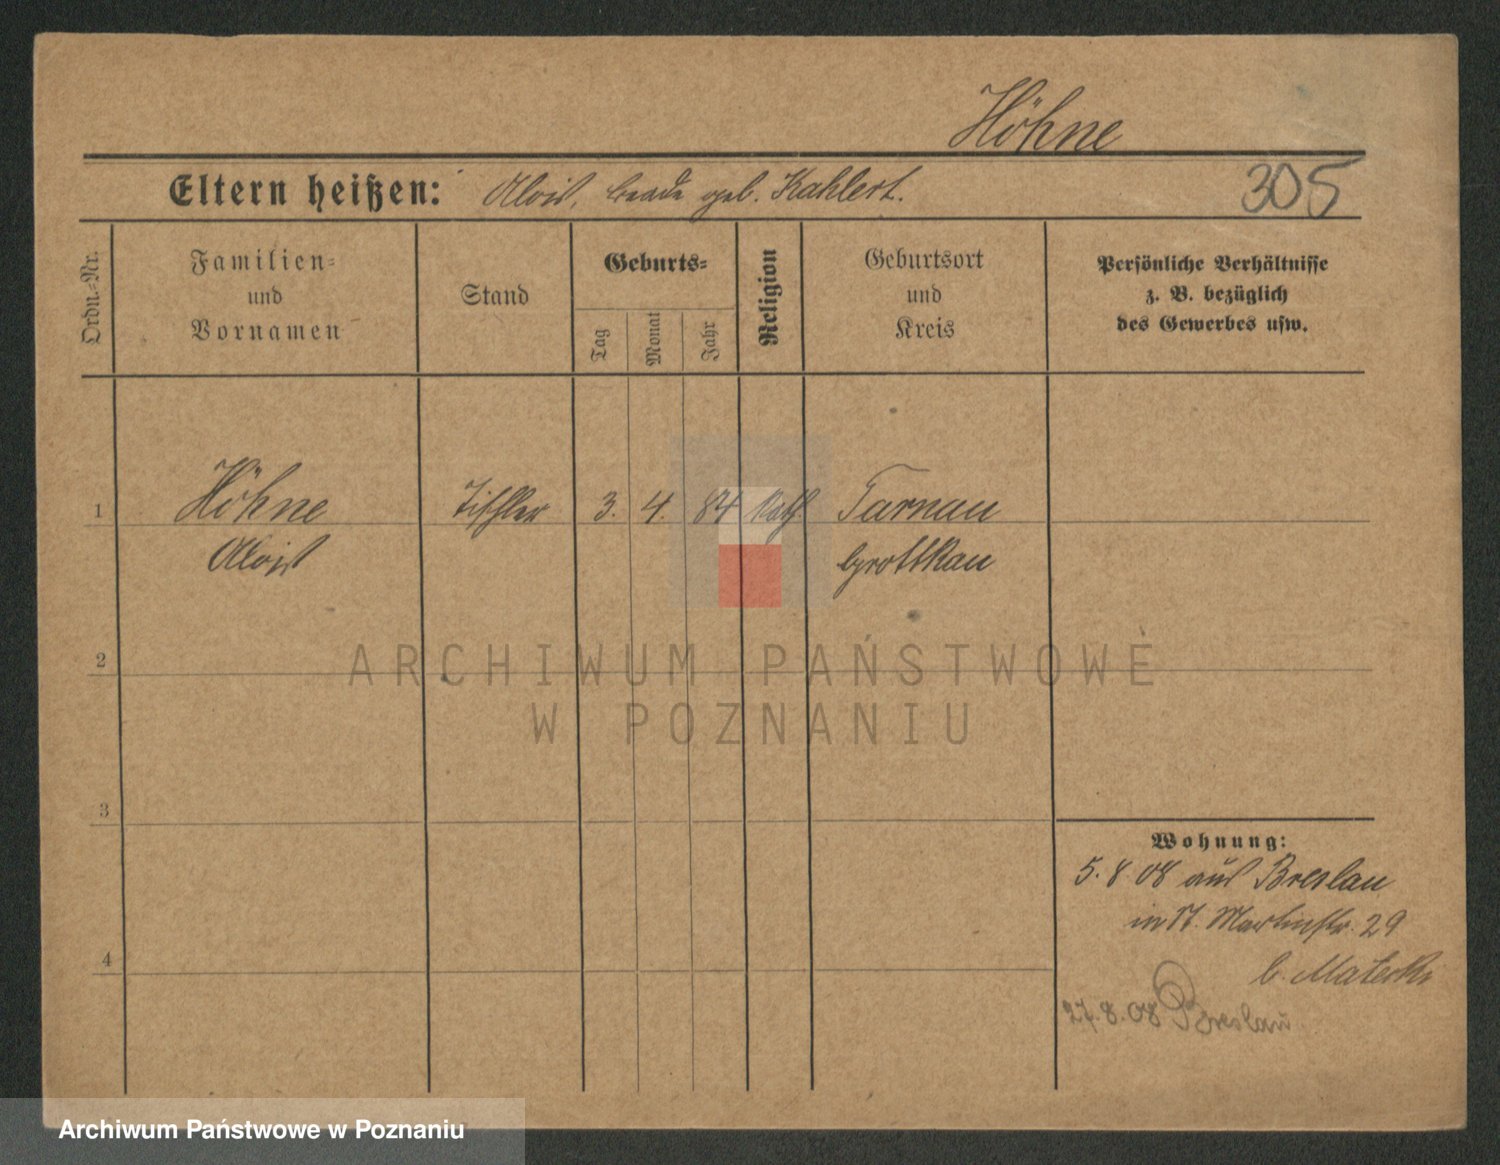 Höhne
Eltern heißen: Alois, geb. Kahlert.
305
Ordn.-Nr.
Familien-
und
Vornamen
Stand
Geburts-
Tag
Monat
Jahr
Religion
Geburtsort
und
Kreis
Persönliche Verhältnisse
z. B. bezüglich
des Gewerbes usw.
1 Höhne Tischler 3. 4. 84 Kath Tarnau
Alois Grottkau
2
ARCHIWUM PAŃSTWOWE
W POZNANIU
3
Wohnung:
5. 8 08 aus Breslau
in St. Martinstr. 29
4
b. Matecki
27. 8. 08 Breslau
Archiwum Państwowe w Poznaniu